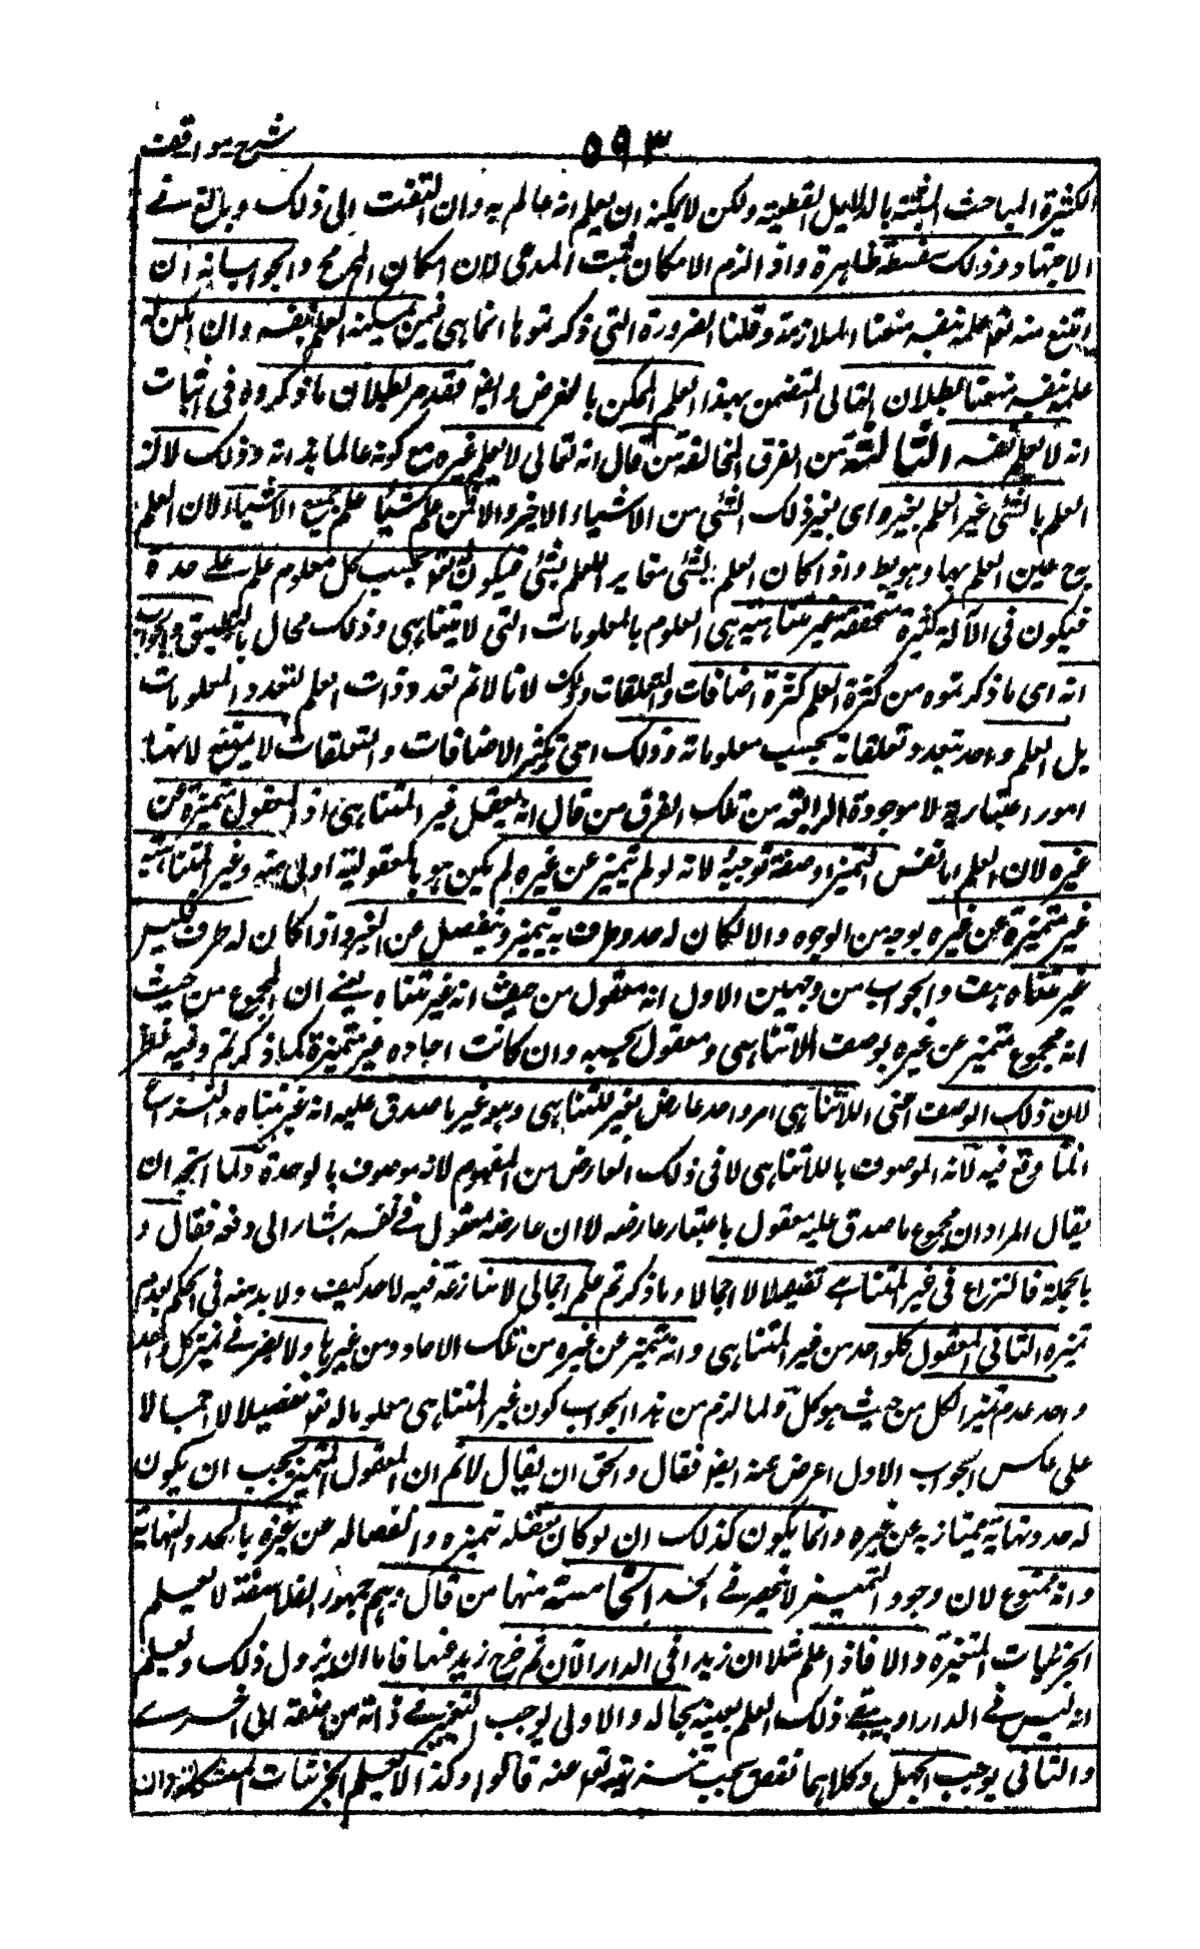 شرح مواقف
٥٩٣
الكثيرة المباحث المثبتة بالدلائل القطعية ولكن لا يمكنه ان يعلم انه عالم به وان التفت الى ذلك وبالغ في
الاجتهاد وذلك سفسطة ظاهرة واذا لزم الامكان ثبت المدعى لان امكان المحوج والجواب انه ان
امتنع منه تع علمه بنفسه منعنا الملازمة وقلنا الضرورة التي ذكرتموها انما هي فيمن يمكنه العلم بنفسه وان امكن له
علمه بنفسه منعنا بطلان التالي المتضمن بهذا العلم الممكن بالفرض وايضا فقد مر بطلان ما ذكروه في اثبات
انه لا يعلم نفسه الثالثة من الفرق المخالفة من قال انه تعالى لا يعلم غيره مع كونه عالما بذاته وذلك لان
العلم بالشئ غير العلم بغيره اى بغير ذلك الشئ من الاشياء الاخر والا فمن علم شيئا علم جميع الاشياء لان العلم
به ح عين العلم بها وهو بط واذا كان العلم بشئ مغاير للعلم بشئ فيكون له تع بحسب كل معلوم علم على حدة
فيكون في ذاته كثرة متحققة غير متناهية هي العلوم بالمعلومات التي لا يتناهى وذلك محال بالتطبيق والجواب
انه اى ما ذكرتموه من كثرة العلم كثرة اضافات وتعلقات وذلك لانا لا نم تعدد ذات العلم لتعدد المعلومات
بل العلم واحد يتعدد تعلقاته بحسب معلوماته وذلك اى تكثر الاضافات والتعلقات لا يمتنع لانها
امور اعتبارية لا موجودة الرابعة من تلك الفرق من قال انه لا يعقل غير المتناهى اذ المعقول متميز عن
غيره لان العلم اما نفس التميز او صفة توجبه لانه لو لم يتميز عن غيره لم يكن هو بالمعقولية اولى منه وغير المتناهى
غير متميز عن غيره بوجه من الوجوه والا لكان له حد وطرف به يتميز وينفصل عن الغير واذا كان له طرف فليس
غير متناه هف والجواب من وجهين الاول انه معقول من حيث انه غير متناه يعنى ان المجموع من حيث
انه مجموع متميز عن غيره بوصف اللاتناهى ومعقول بحسبه وان كانت احاده غير متميزة كما ذكرتم وفيه نظر
لان ذلك الوصف اعنى اللاتناهى امر واحد عارض لغير المتناهى وهو غير ما صدق عليه انه غير متناه والنزاع
انما وقع فيه لانه الموصوف باللاتناهى لا في ذلك العارض من المفهوم لانه موصوف بالوحدة ولما اتجه ان
يقال المراد ان مجموع ما صدق عليه معقول باعتبار عارضه لا ان عارضه معقول في نفسه اشار الى دفعه فقال و
بالجملة فالنزاع في غير المتناهى تفصيلا لا اجمالا وما ذكرتم علم اجمالى لا منازعة فيه لاحد كيف ولا بد منه في الحكم بعدم
تميزه الثاني المعقول كل واحد من غير المتناهى وانه متميز عن غيره من تلك الاحاد ومن غيرها ولا يضر في تميز كل واحد
واحد عدم تميز الكل من حيث هو كل ولما لزم من هذا الجواب كون غير المتناهى معلوما له تع تفصيلا لا اجمالا
على عكس الجواب الاول اعرض عنه ايضا فقال والحق ان يقال لا نم ان المعقول المتميز يجب ان يكون
له حد ونهاية يمتاز به عن غيره وانما يكون كذلك ان لو كان تعقله تميزه وانفصاله عن غيره بالحد والنهاية
وانه ممنوع لان وجوه التميز لا ينحصر في الحد الخامسة منها من قال وهم جمهور الفلاسفة لا يعلم
الجزئيات المتغيرة والا فاذا علم مثلا ان زيدا في الدار الآن ثم خرج زيد عنها فاما ان يزول ذلك ويعلم
انه ليس في الدار او يبقى ذلك العلم بعينه بحاله والاولى يوجب التغير في ذاته من صفة الى اخرى
والثاني يوجب الجهل وكلاهما نقص يجب تنزيهه تع عنه قالوا وكذا لا يعلم الجزئيات المتشكلة وان